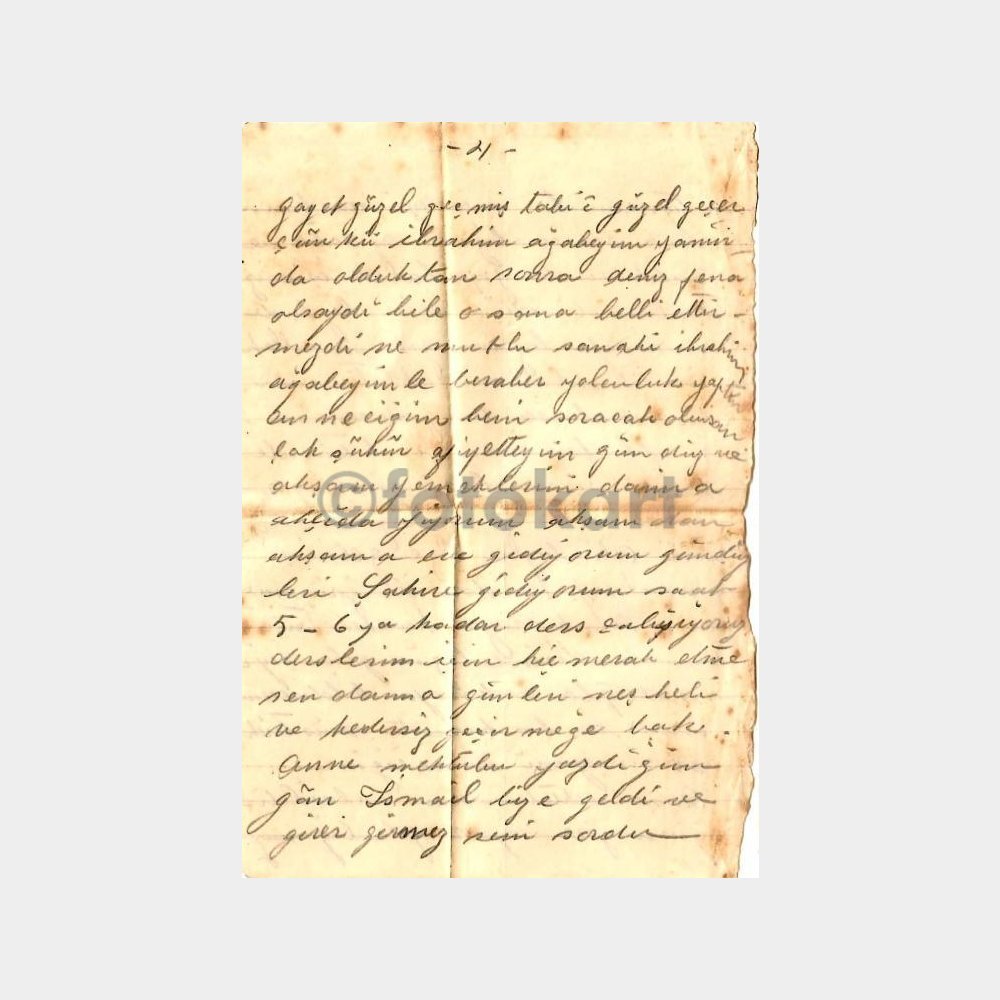 - 4 -
gayet güzel geçmiş tabiî güzel geçer
çünkü ibrahim ağabeyim yanın
da olduktan sonra deniz fena
olsaydı bile o sana belli ettir-
mezdi ne mutlu sanaki ibrahim
ağabeyimle beraber yolculuk yaptın
anneciğim beni soracak olursan
çok şükür afiyetteyim gündüz ve
akşam yemeklerini daima
ahçıda yiyorum akşamdan
akşama eve gidiyorum gündüz
leri Şakire gidiyorum saat
5 - 6 ya kadar ders çalışıyoruz
derslerim için hiç merak etme
sen daima günleri neşheli
ve kedersiz geçirmeğe bak.
Anne mektubu yazdığım
gün İsmail bize geldi ve
girer girmez seni sordu
©fotokart